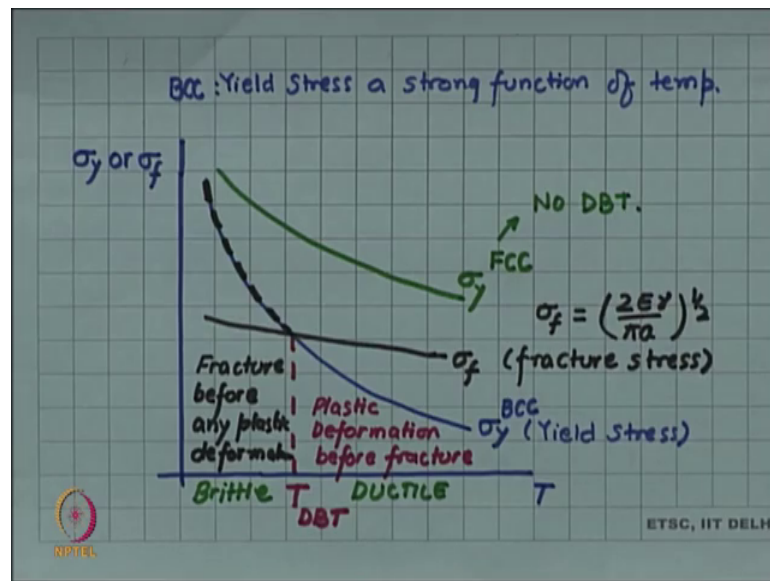 BCC: Yield Stress a strong function of temp.
σy or σf
NO DBT.
σy FCC
σf = (2Eγ/πa)^1/2
σf (fracture stress)
σy BCC (Yield Stress)
Fracture
before
any plastic
deformatn
Plastic
Deformation
before fracture
Brittle
T DBT
DUCTILE
T
NPTEL
ETSC, IIT DELH